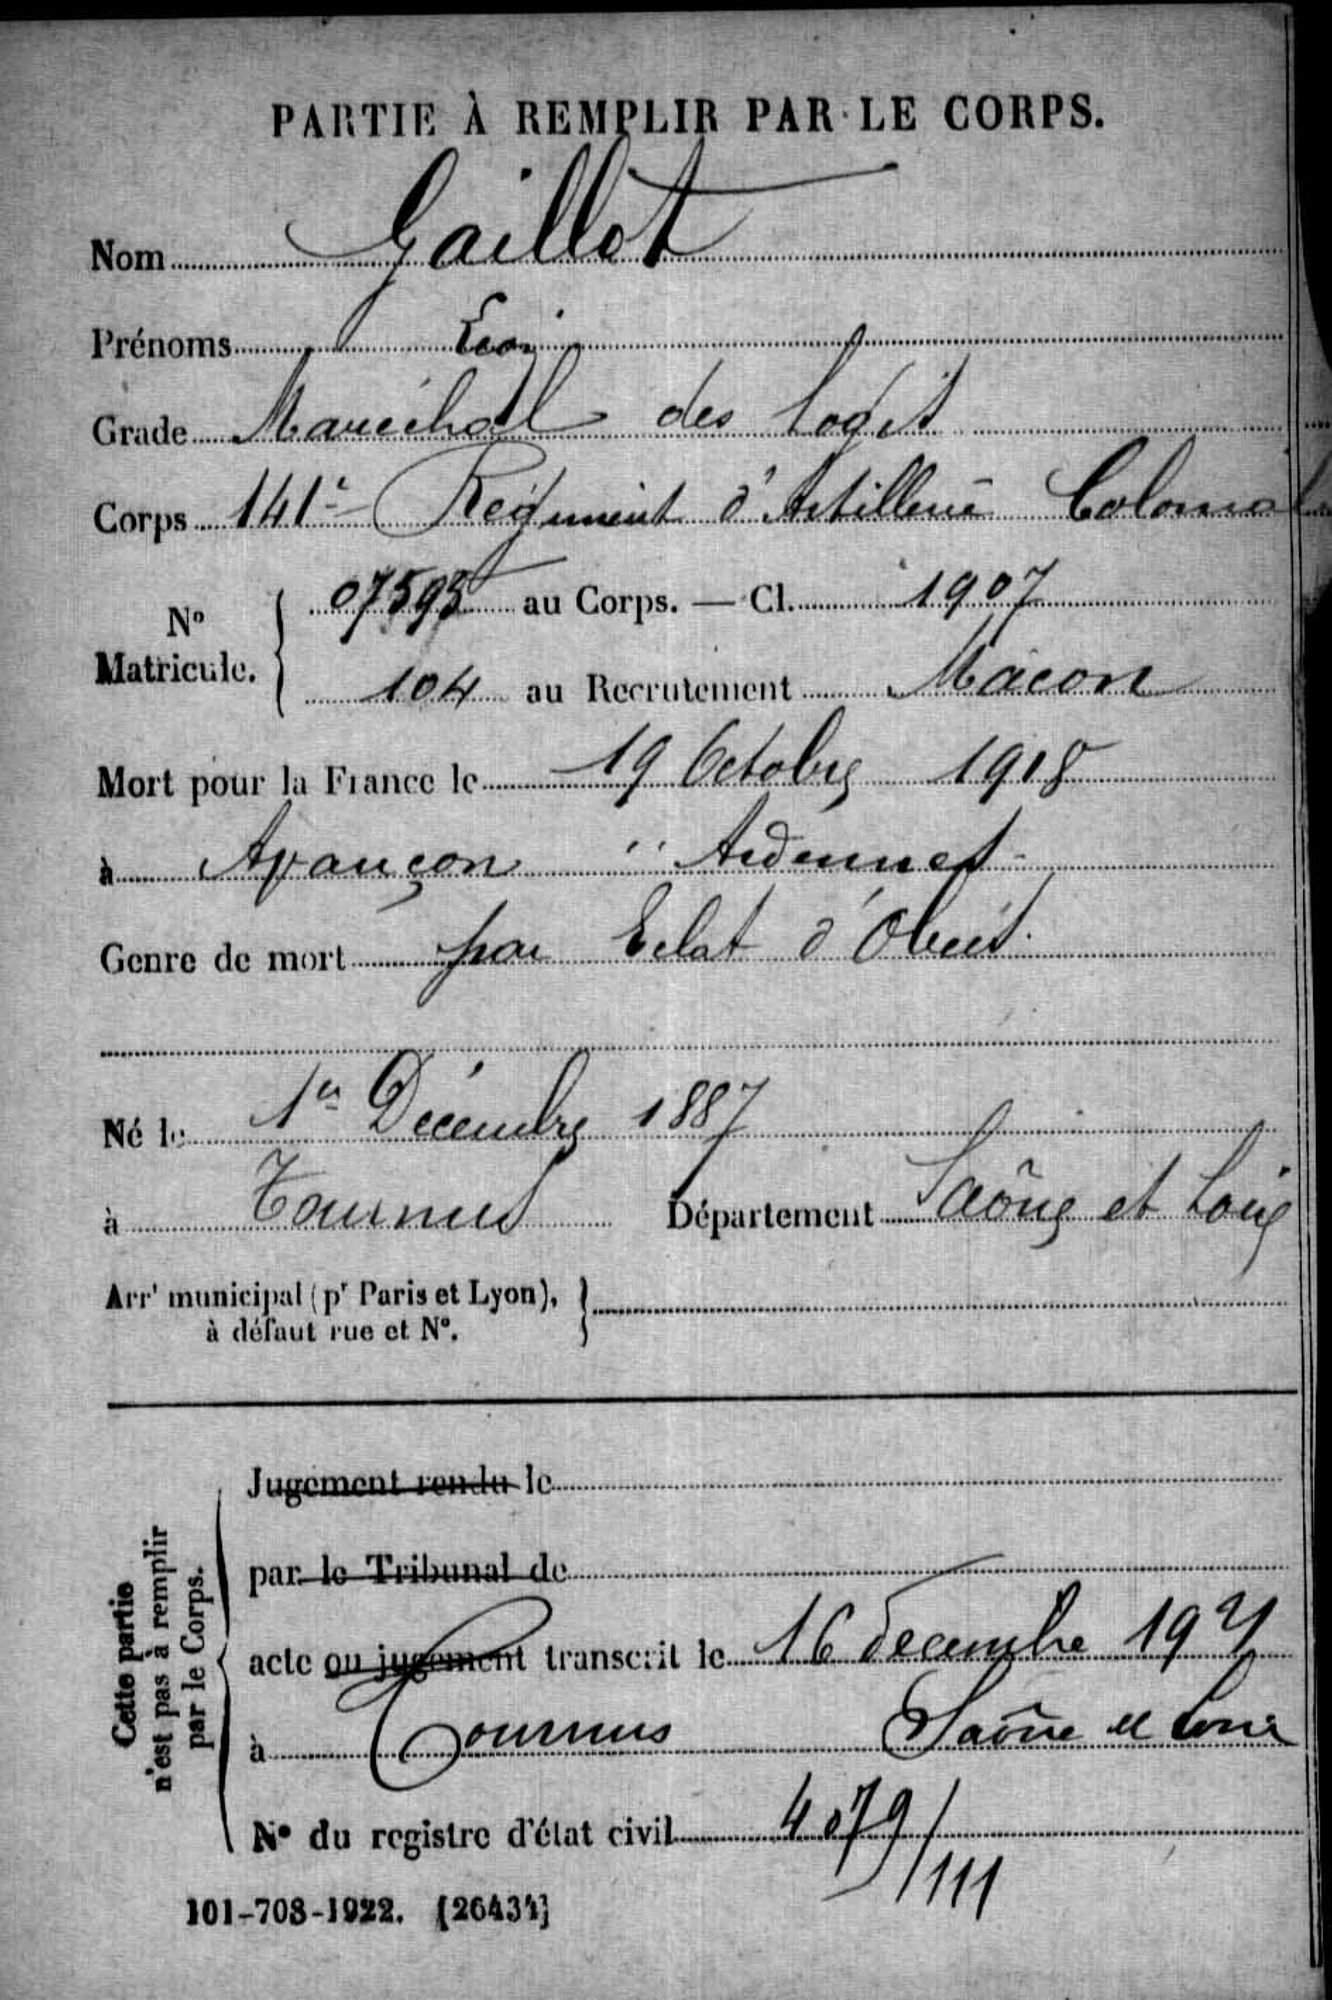 PARTIE À REMPLIR PAR LE CORPS.
Nom Gaillot
Prénoms Léon
Grade Maréchal des logis
Corps 141e Régiment d'Artillerie Colonial
No Matricule. 07593 au Corps. — Cl. 1907
104 au Recrutement Mâcon
Mort pour la France le 19 Octobre 1918
à Avançon Ardennes
Genre de mort par Eclat d'Obus
Né le 1er Décembre 1887
à Tournus Département Saône et Loire
Arrt municipal (pr Paris et Lyon),
à défaut rue et No.
Cette partie
n'est pas à remplir
par le Corps.
Jugement rendu le
par le Tribunal de
acte ou jugement transcrit le 16 decembre
à Tournus Saône et Loire
No du registre d'état civil 4079/111
101-708-1922. [26434]